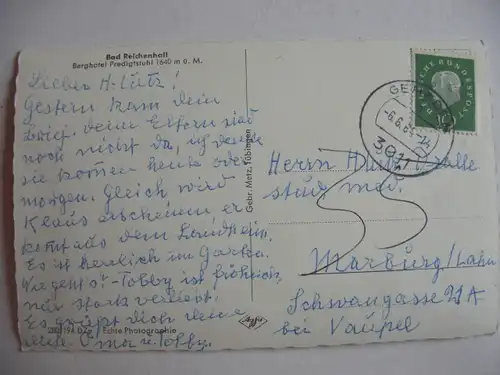 Bad Reichenhall
Berghotel Predigtstuhl 1640 m ü. M.
Lieber H. Lutz!
Gestern kam dein
Brief, deine Eltern sind
noch nicht da, ich denke
sie kommen heute oder
morgen. Gleich wird
Klaus erscheinen, er
kommt aus dem Landheim.
Es ist herrlich im Garten.
Wie geht's? - Tobby ist fröhlich,
nur stark verliebt.
Es grüßt dich deine
Oma u. Tobby.
Echte Photographie
Agfa
Gebr. Metz, Tübingen
DEUTSCHE BUNDESPOST
10
-6.6.61-14
Herrn
stud. med.
Marburg/Lahn
Schwangasse 21A
bei Vaupel